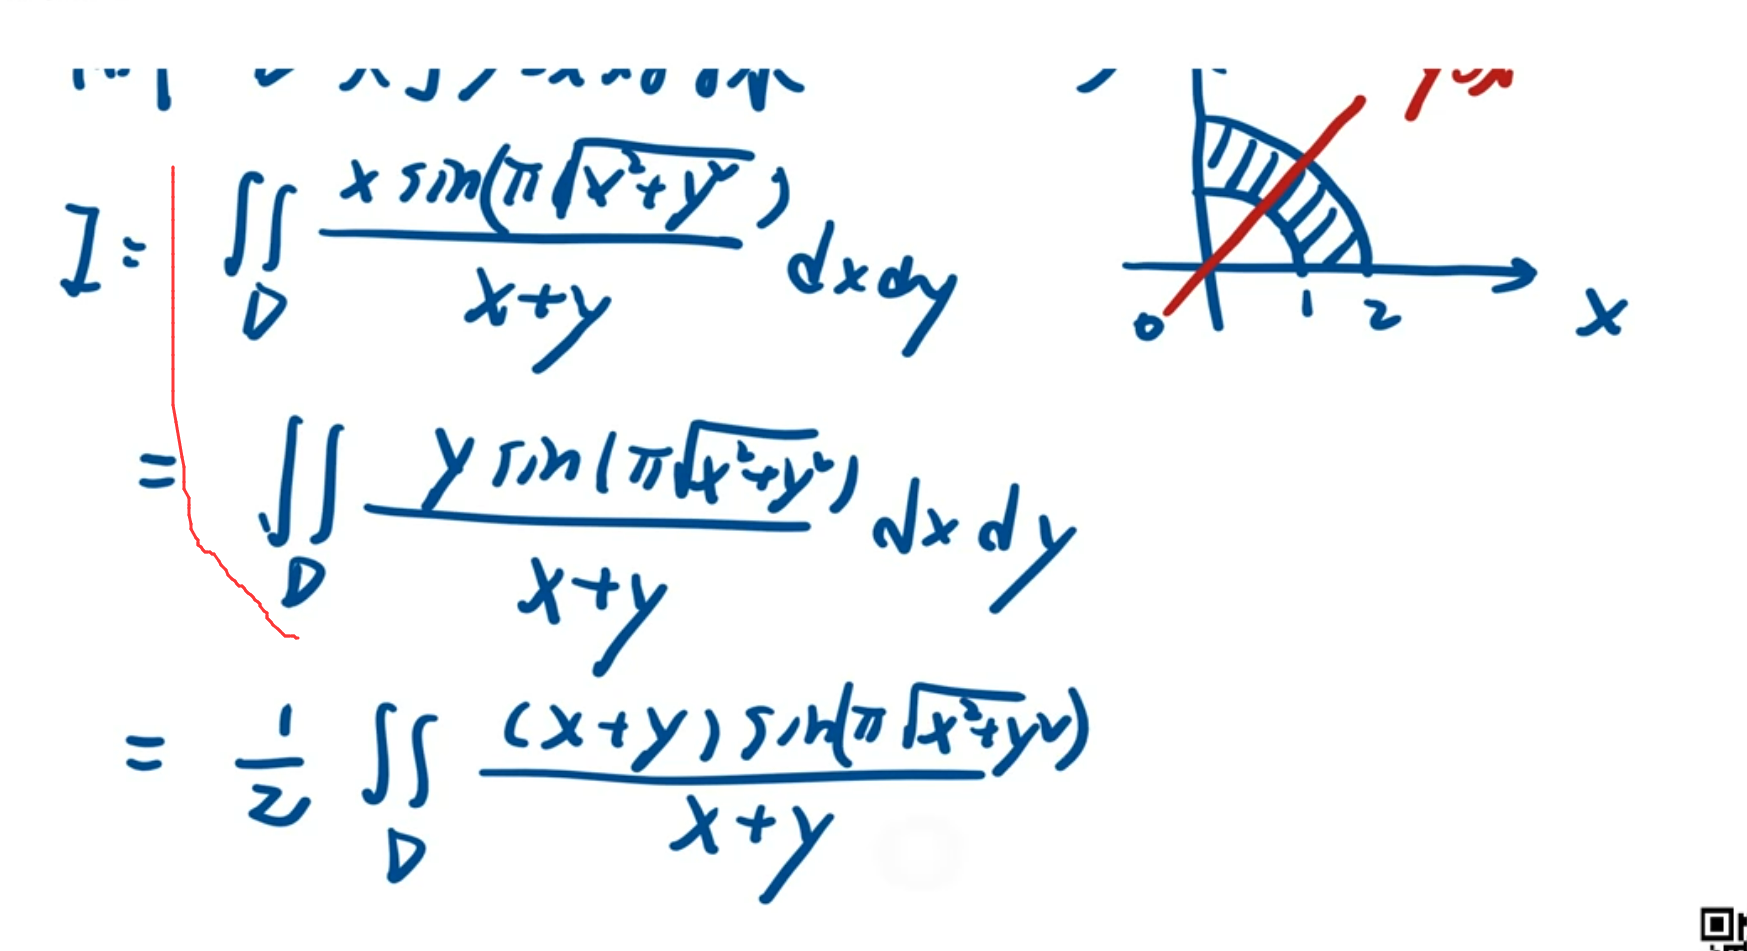 I = ∬_D x sin(π√(x²+y²)) / (x+y) dxdy
= ∬_D y sin(π√(x²+y²)) / (x+y) dxdy
= 1/2 ∬_D (x+y) sin(π√(x²+y²)) / (x+y)
0 1 2 x